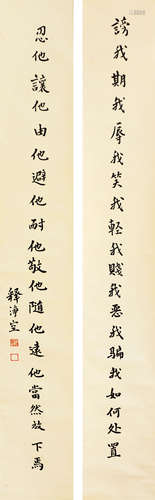 謗我欺我辱我笑我輕我賤我惡我騙我如何处置
忍他讓他由他避他耐他敬他隨他遠他當然放下焉
釋淨空